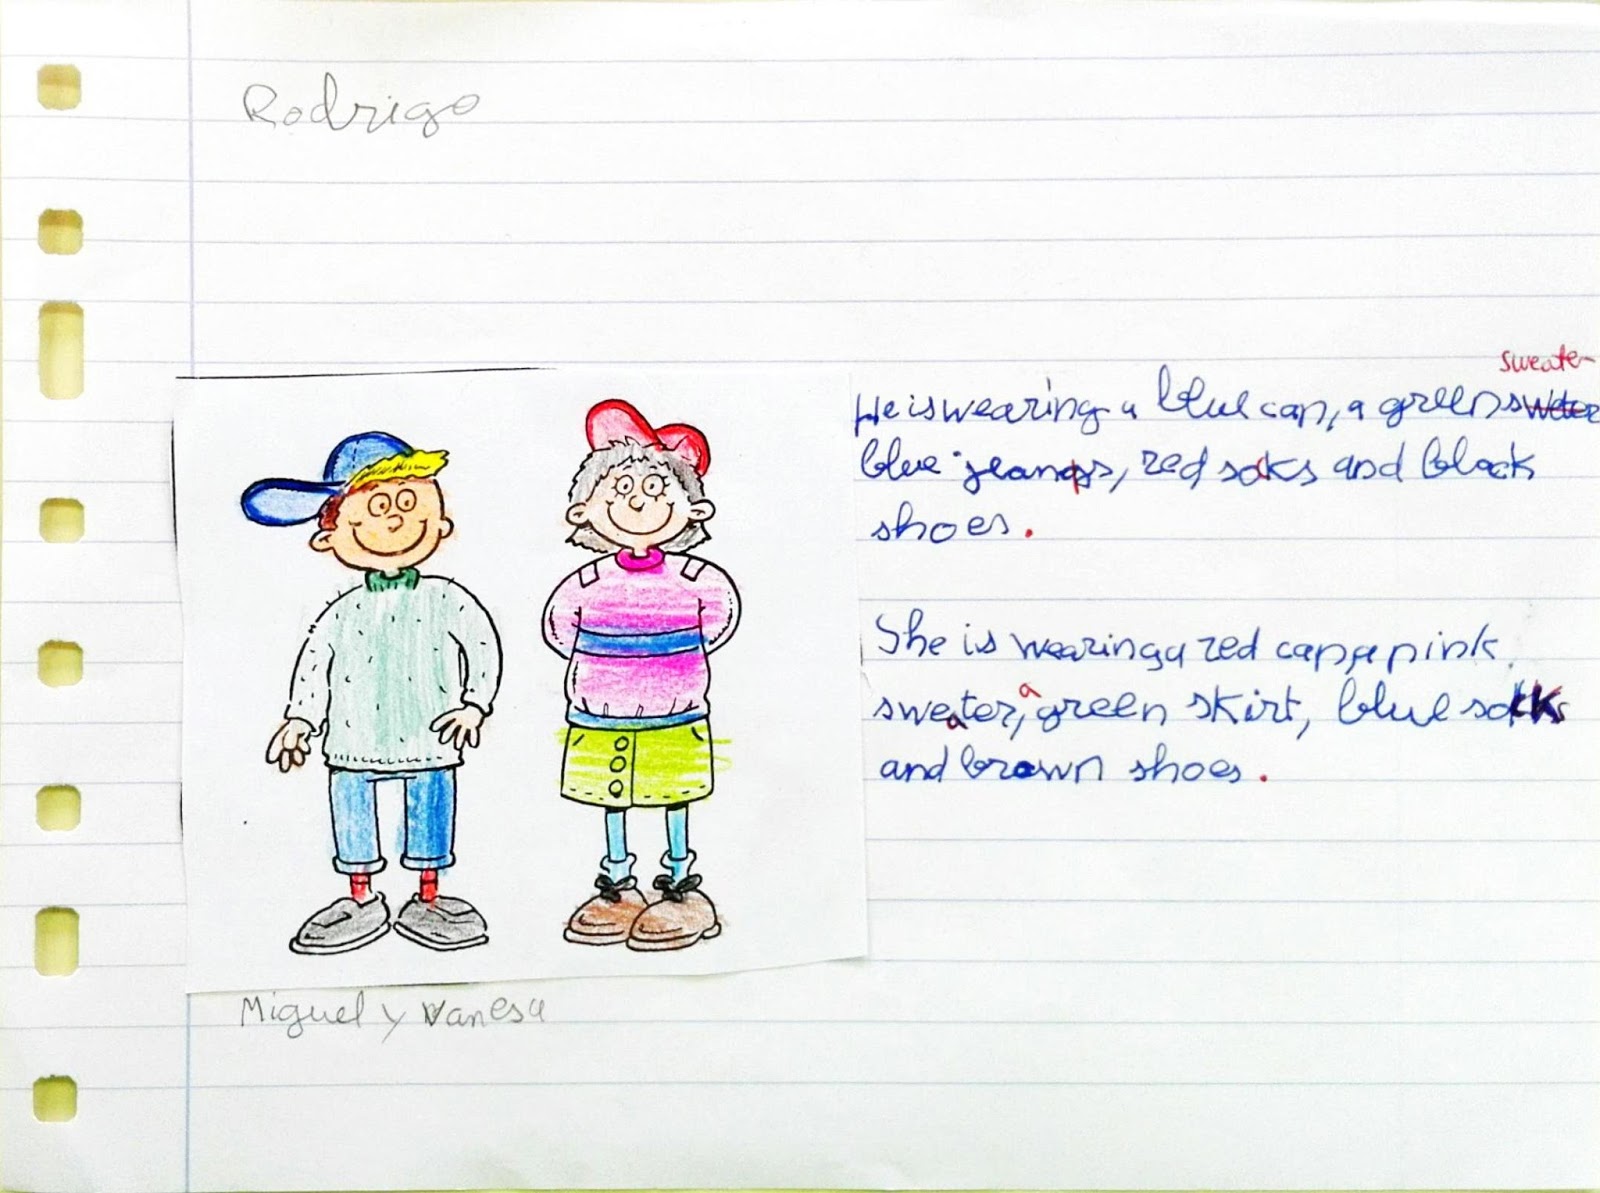 Rodrigo
sweater
He is wearing a blue cap, a green sweter
blue jeans, red socks and black
shoes.
She is wearing a red cap, a pink
sweater, a green skirt, blue socks
and brown shoes.
Miguel y Vanesa